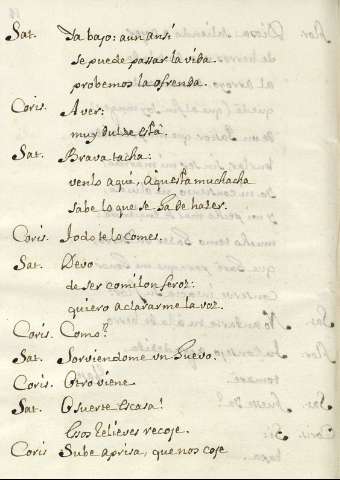 Sat. Ya bajo: aun ansi
se puede passar la vida.
probemos la ofrenda.
Coris. A ver:
muy dulze està.
Sat. Brava tacha:
venlo aqui, aquesta muchacha
sabe lo que se ha de hazer.
Coris. Todo te lo comes.
Sat. Devo
de ser comilon feroz:
quiero aclararme la voz.
Coris. Como?
Sat. Sorviendome un huevo.
Coris. Otro viene.
Sat. O suerte escasa!
Essos relieves recoje.
Coris Sube aprisa, que nos coje